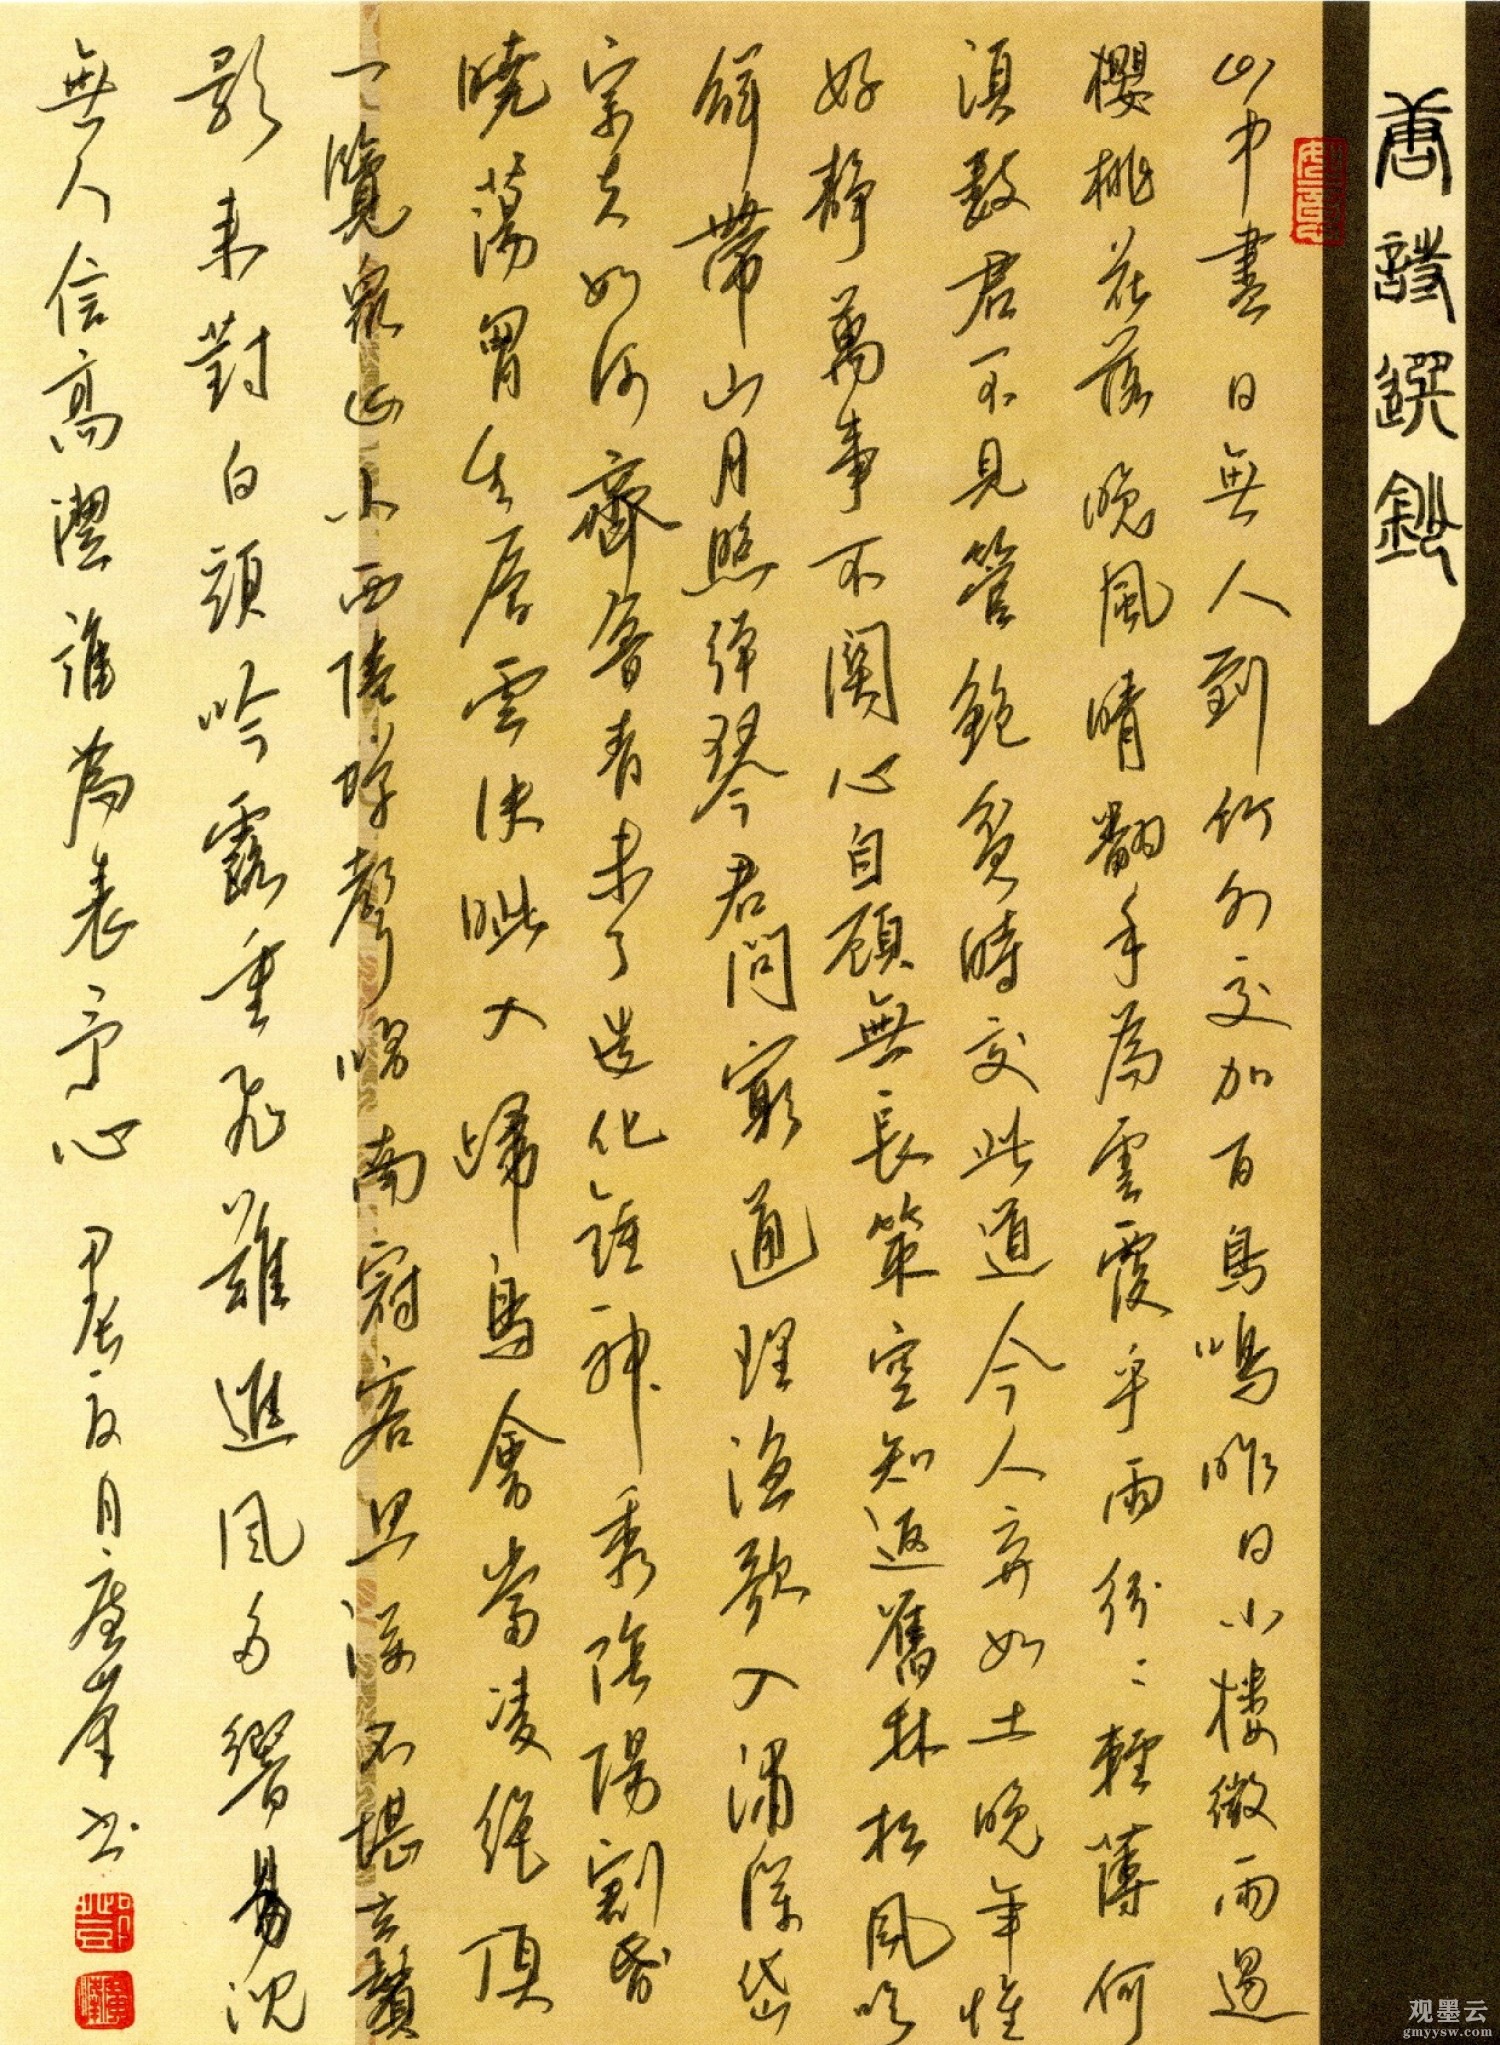 唐詩選鈔
山中盡日無人到竹外交加百鳥鳴昨日小樓微雨過
櫻桃花落晚風晴翻手為雲覆手雨紛〻輕薄何
須數君不見管鮑貧時交此道今人棄如土晚年惟
好靜萬事不關心自顧無長策空知返舊林松風吹
解帶山月照彈琴君問窮通理漁歌入浦深岱
宗夫如何齊魯青未了造化鍾神秀陰陽割昏
曉蕩胸生層雲決眥入歸鳥會當凌絕頂
一覽眾山小西陸蟬聲唱南冠客思深不堪玄鬢
影來對白頭吟露重飛難進風多響易沉
無人信高潔誰為表予心 甲辰夏月 崖書
观墨云
gmyysw.com